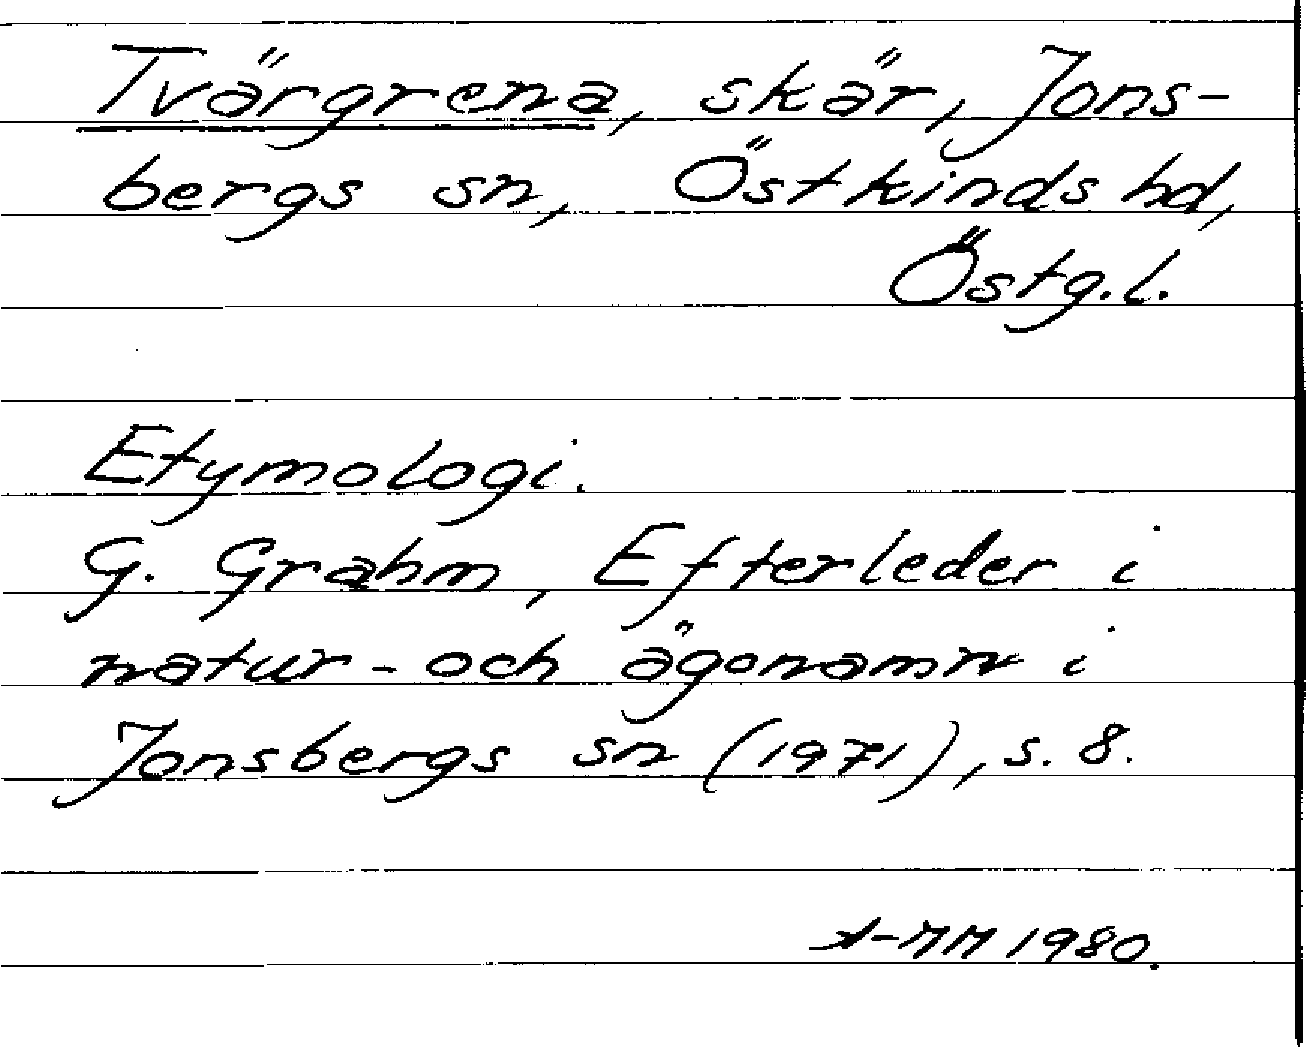 Tvärgrena, skär, Jons-
bergs sn, Östkinds hd,
Östg.l.
Etymologi.
G. Grahm, Efterleder i
natur- och ägonamn i
Jonsbergs sn (1971), s. 8.
A-MM 1980.